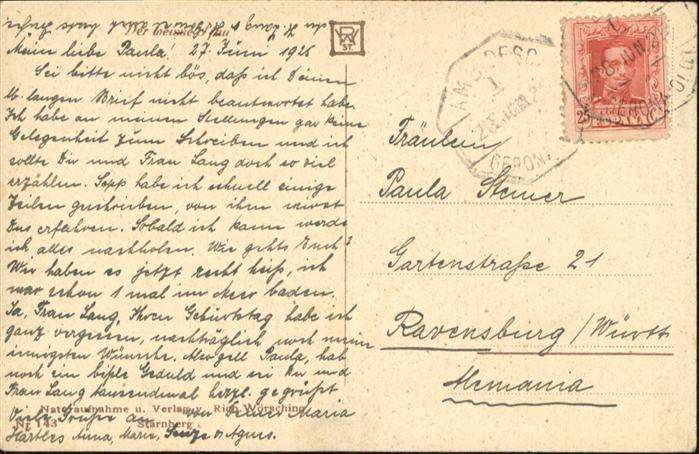 Mein liebe Paula! 27 Juni 1926
Sei bitte nicht bös, daß ich Deinen
lb. langen Brief nicht beantwortet habe
Ich habe an meinen Stellungen gar keine
Gelegenheit zum Schreiben und ich
sollte Dir und Frau Lang doch so viel
erzählen. Sepp habe ich schnell einige
Zeilen geschrieben, von ihm wirst
Du's erfahren. Sobald ich kann werde
ich alles nachholen. Wie gehts Euch?
Wir haben es jetzt recht heiß, ich
war schon 1 mal im Meer baden.
Ja, Frau Lang, Ihren Geburtstag habe ich
ganz vergessen, nachträglich noch meine
innigsten Wünsche. Also gell Paula, hab
noch ein bißle Geduld und sei Du und
Frau Lang tausendmal herzl. gegrüßt
Viele Grüße an von Deiner Maria
Härtles Anna, Marie, Senze u Agnes.
Naturaufnahme u. Verlag Rich. Wörsching
Nr 143 Starnberg
ST.
GERONA
Fräulein
Paula Steiner
Gartenstraße 21
Ravensburg / Württ
Alemania
25